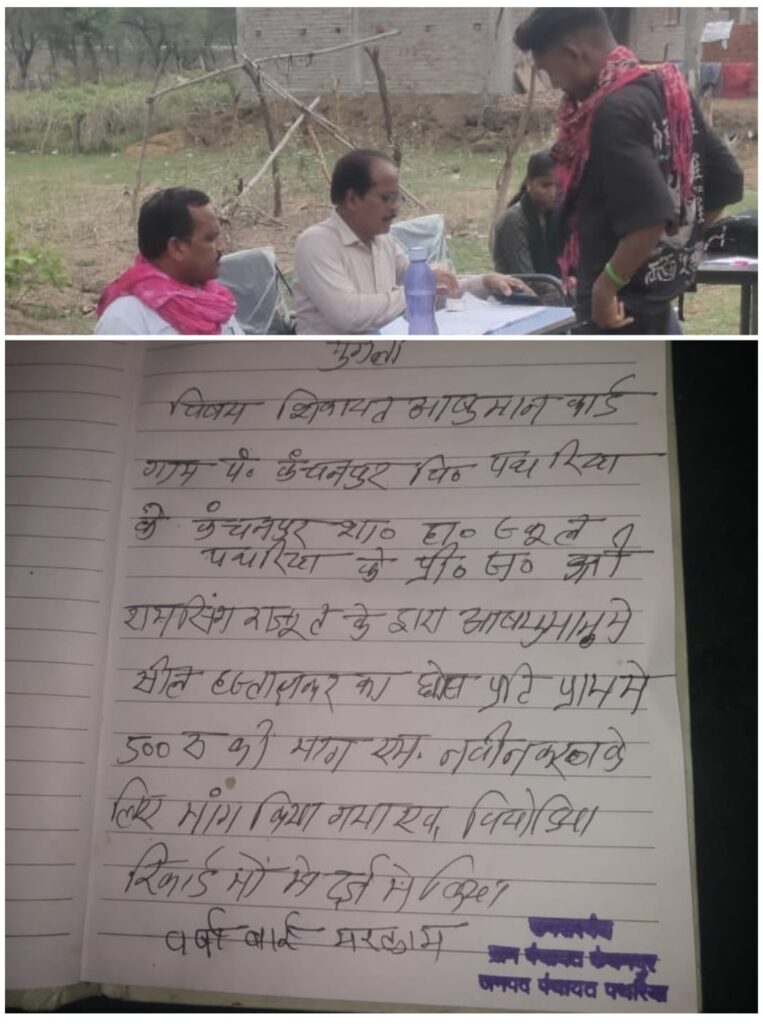 मुंगेली
विषय शिकायत आयुष्मान कार्ड
ग्राम पं० कंचनपुर वि० पथरिया
के कंचनपुर शा० हा० स्कूल
पथरिया के प्री० ज० श्री
रामसिंग राजपूत के द्वारा
सील हस्ताक्षर का प्रति में
500 रु की मांग एम. नवीनकरण के
लिए मांग किया गया एवं विडियो
रिकार्ड में दर्ज
वर्षा बाई मरकाम
उपसरपंच
ग्राम पंचायत कंचनपुर
जनपद पंचायत पथरिया